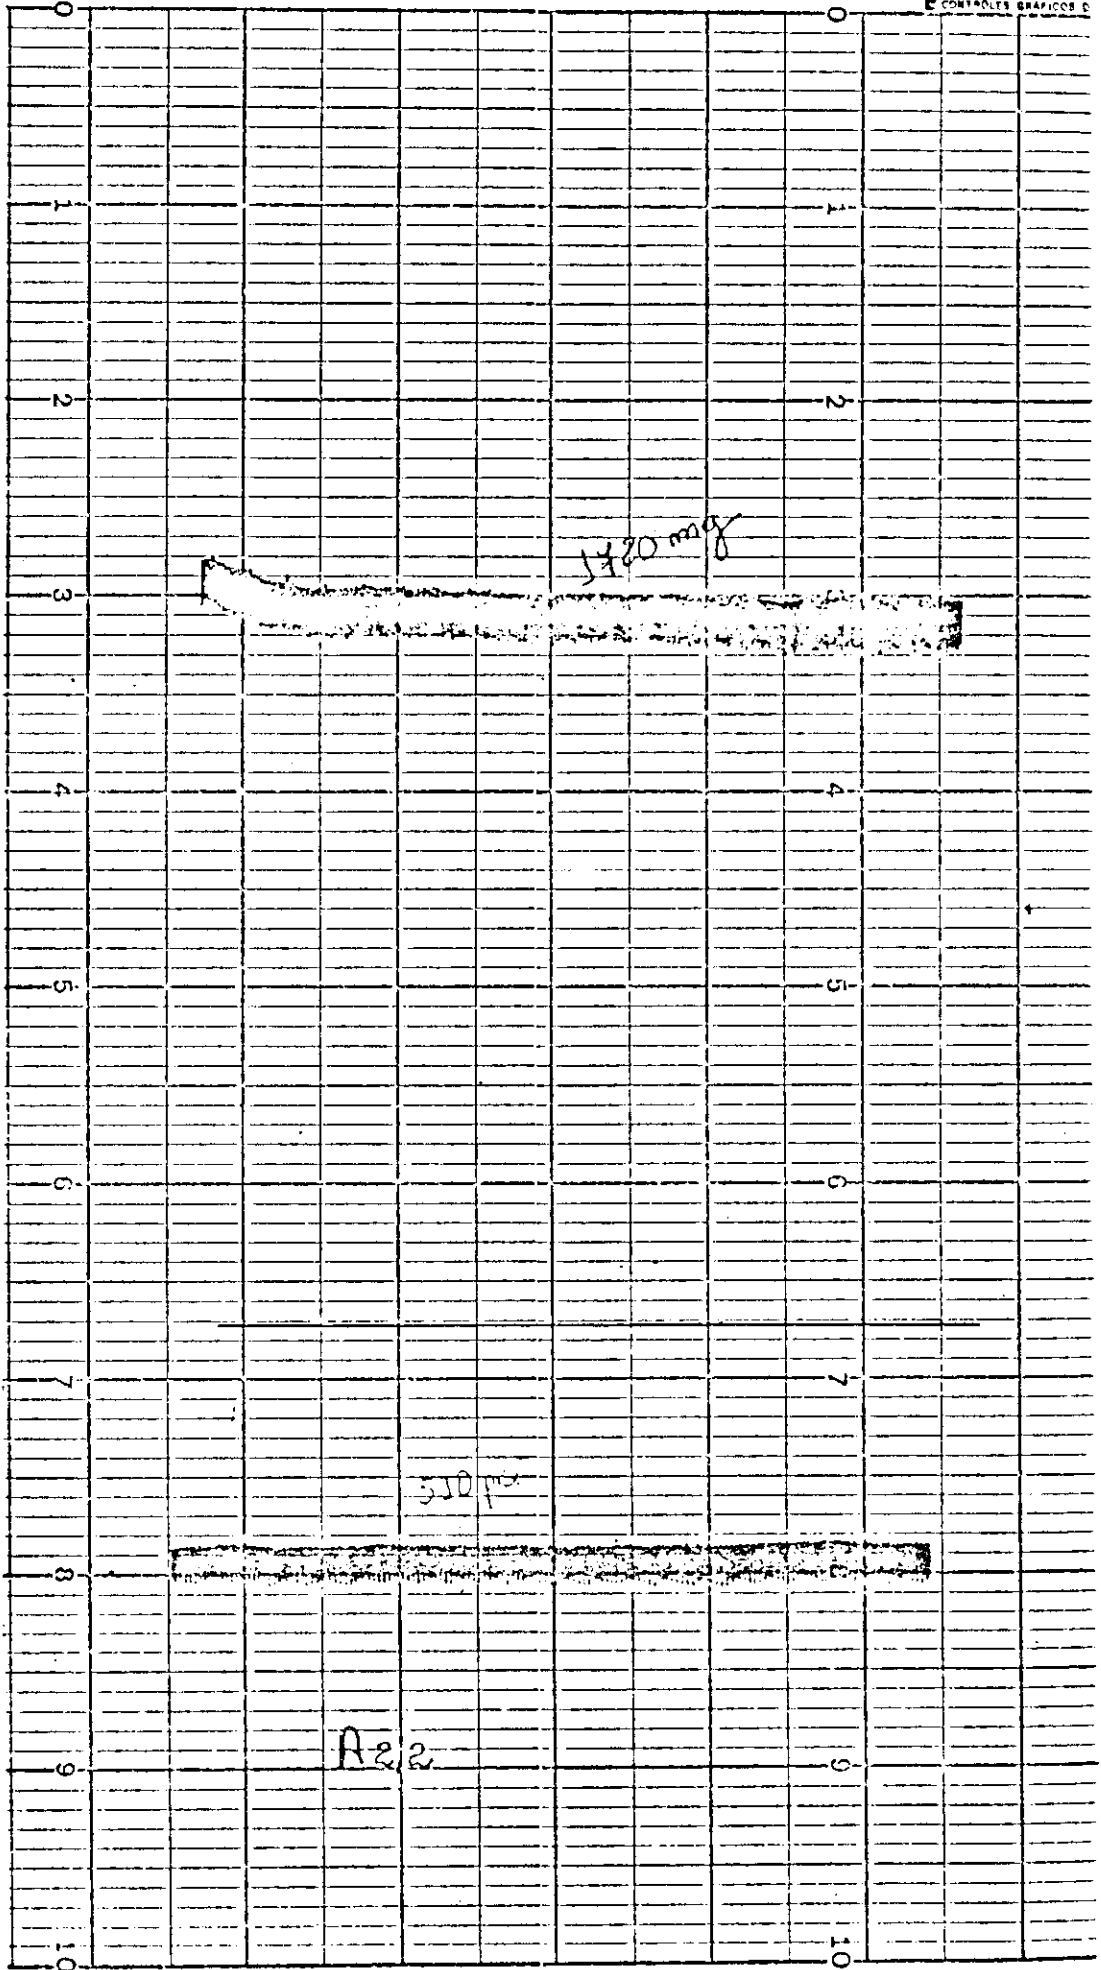 CONTROLES GRAFICOS D
0 0
1 1
2 2
1720 mg
3
4 4
5 5
6 6
7 7
510
8 8
A22
9 9
10 10